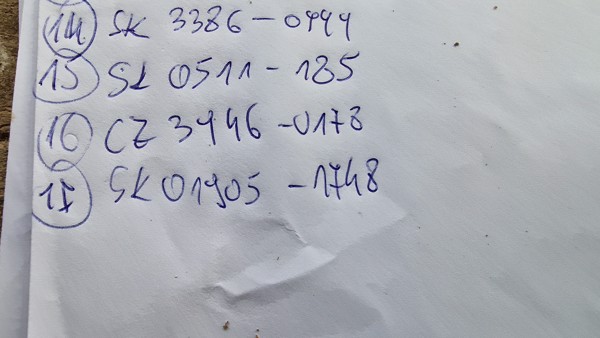 14 SK 3386-0444
15 SK 0511-185
16 CZ 3446-0178
17 SK 01905-1748